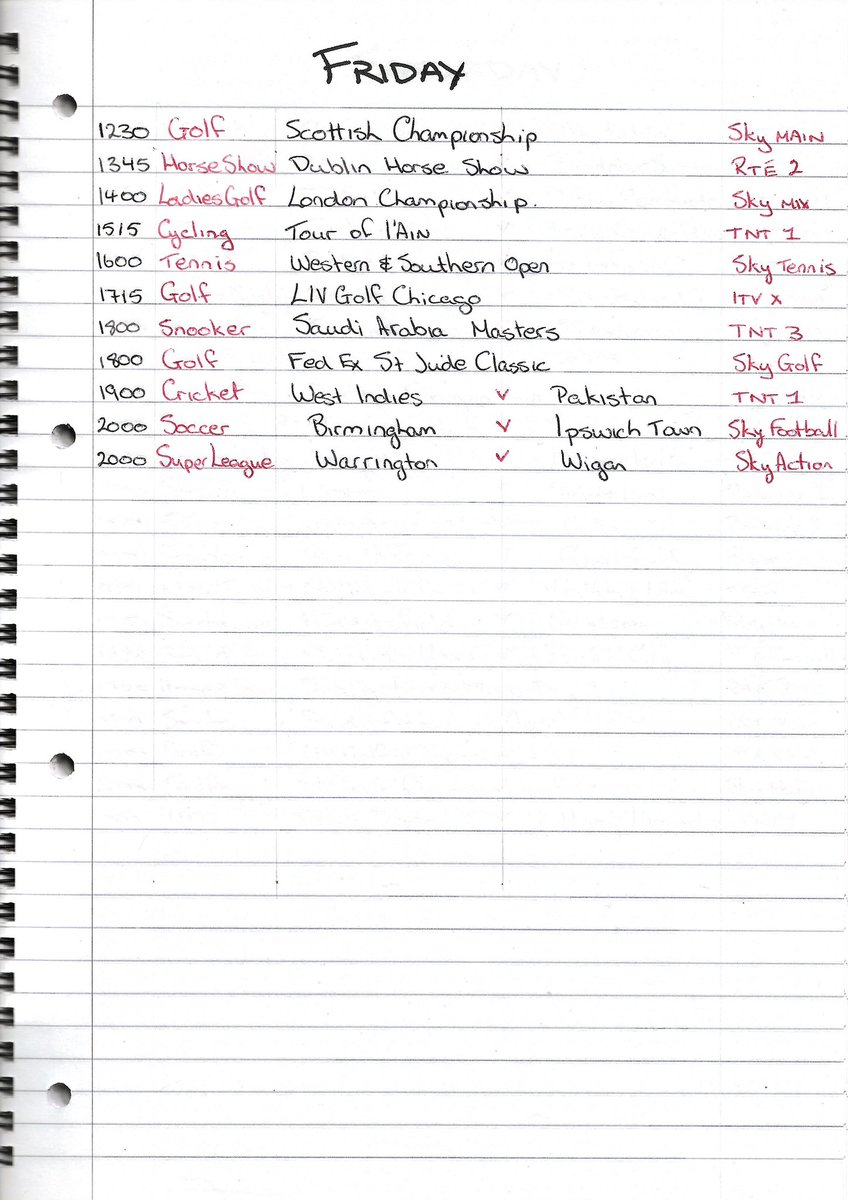 FRIDAY
1230 Golf Scottish Championship Sky MAIN
1345 HorseShow Dublin Horse Show RTE 2
1400 LadiesGolf London Championship. Sky MIX
1515 Cycling Tour of l'AIN TNT 1
1600 Tennis Western & Southern Open Sky Tennis
1715 Golf LIV Golf Chicago ITV X
1800 Snooker Saudi Arabia Masters TNT 3
1800 Golf Fed Ex St Jude Classic Sky Golf
1900 Cricket West Indies v Pakistan TNT 1
2000 Soccer Birmingham v Ipswich Town Sky Football
2000 SuperLeague Warrington v Wigan Sky Action